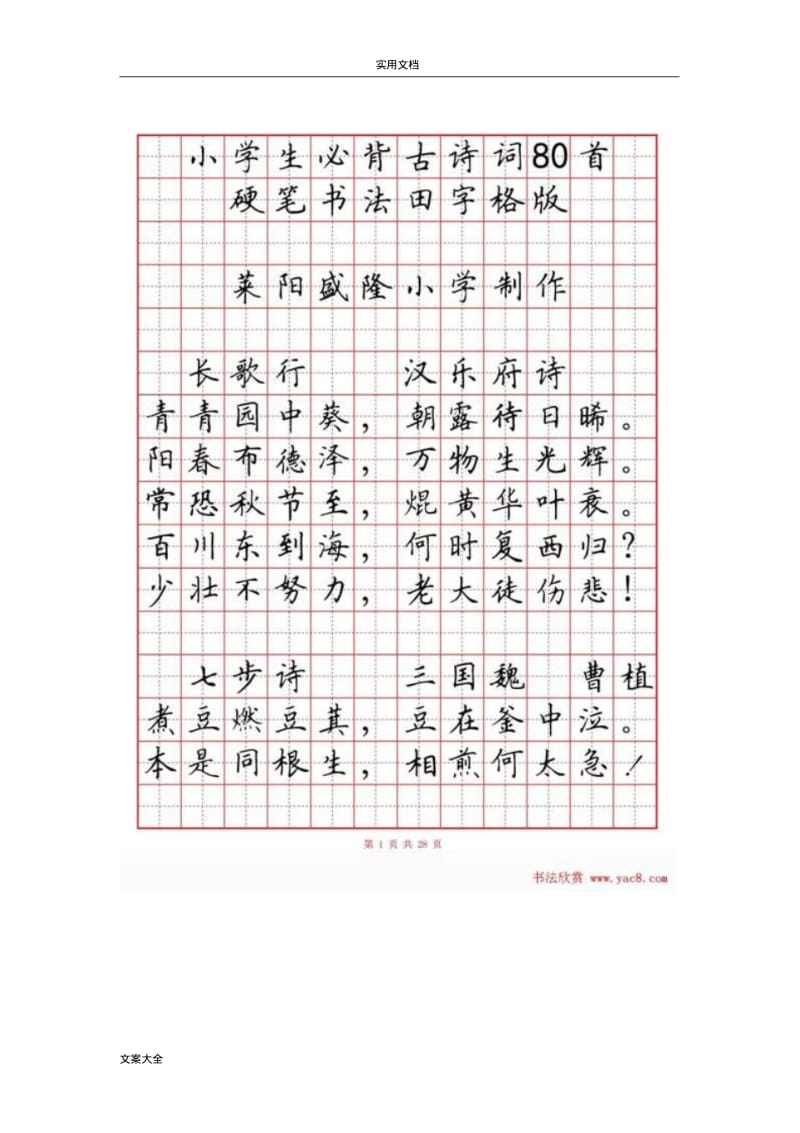 实用文档
小学生必背古诗词80首
硬笔书法田字格版
莱阳盛隆小学制作
长歌行 汉乐府诗
青青园中葵，朝露待日晞。
阳春布德泽，万物生光辉。
常恐秋节至，焜黄华叶衰。
百川东到海，何时复西归?
少壮不努力，老大徒伤悲!
七步诗 三国魏 曹植
煮豆燃豆萁，豆在釜中泣。
本是同根生，相煎何太急!
第 1 页 共 28 页
书法欣赏 www.yac8.com
文案大全